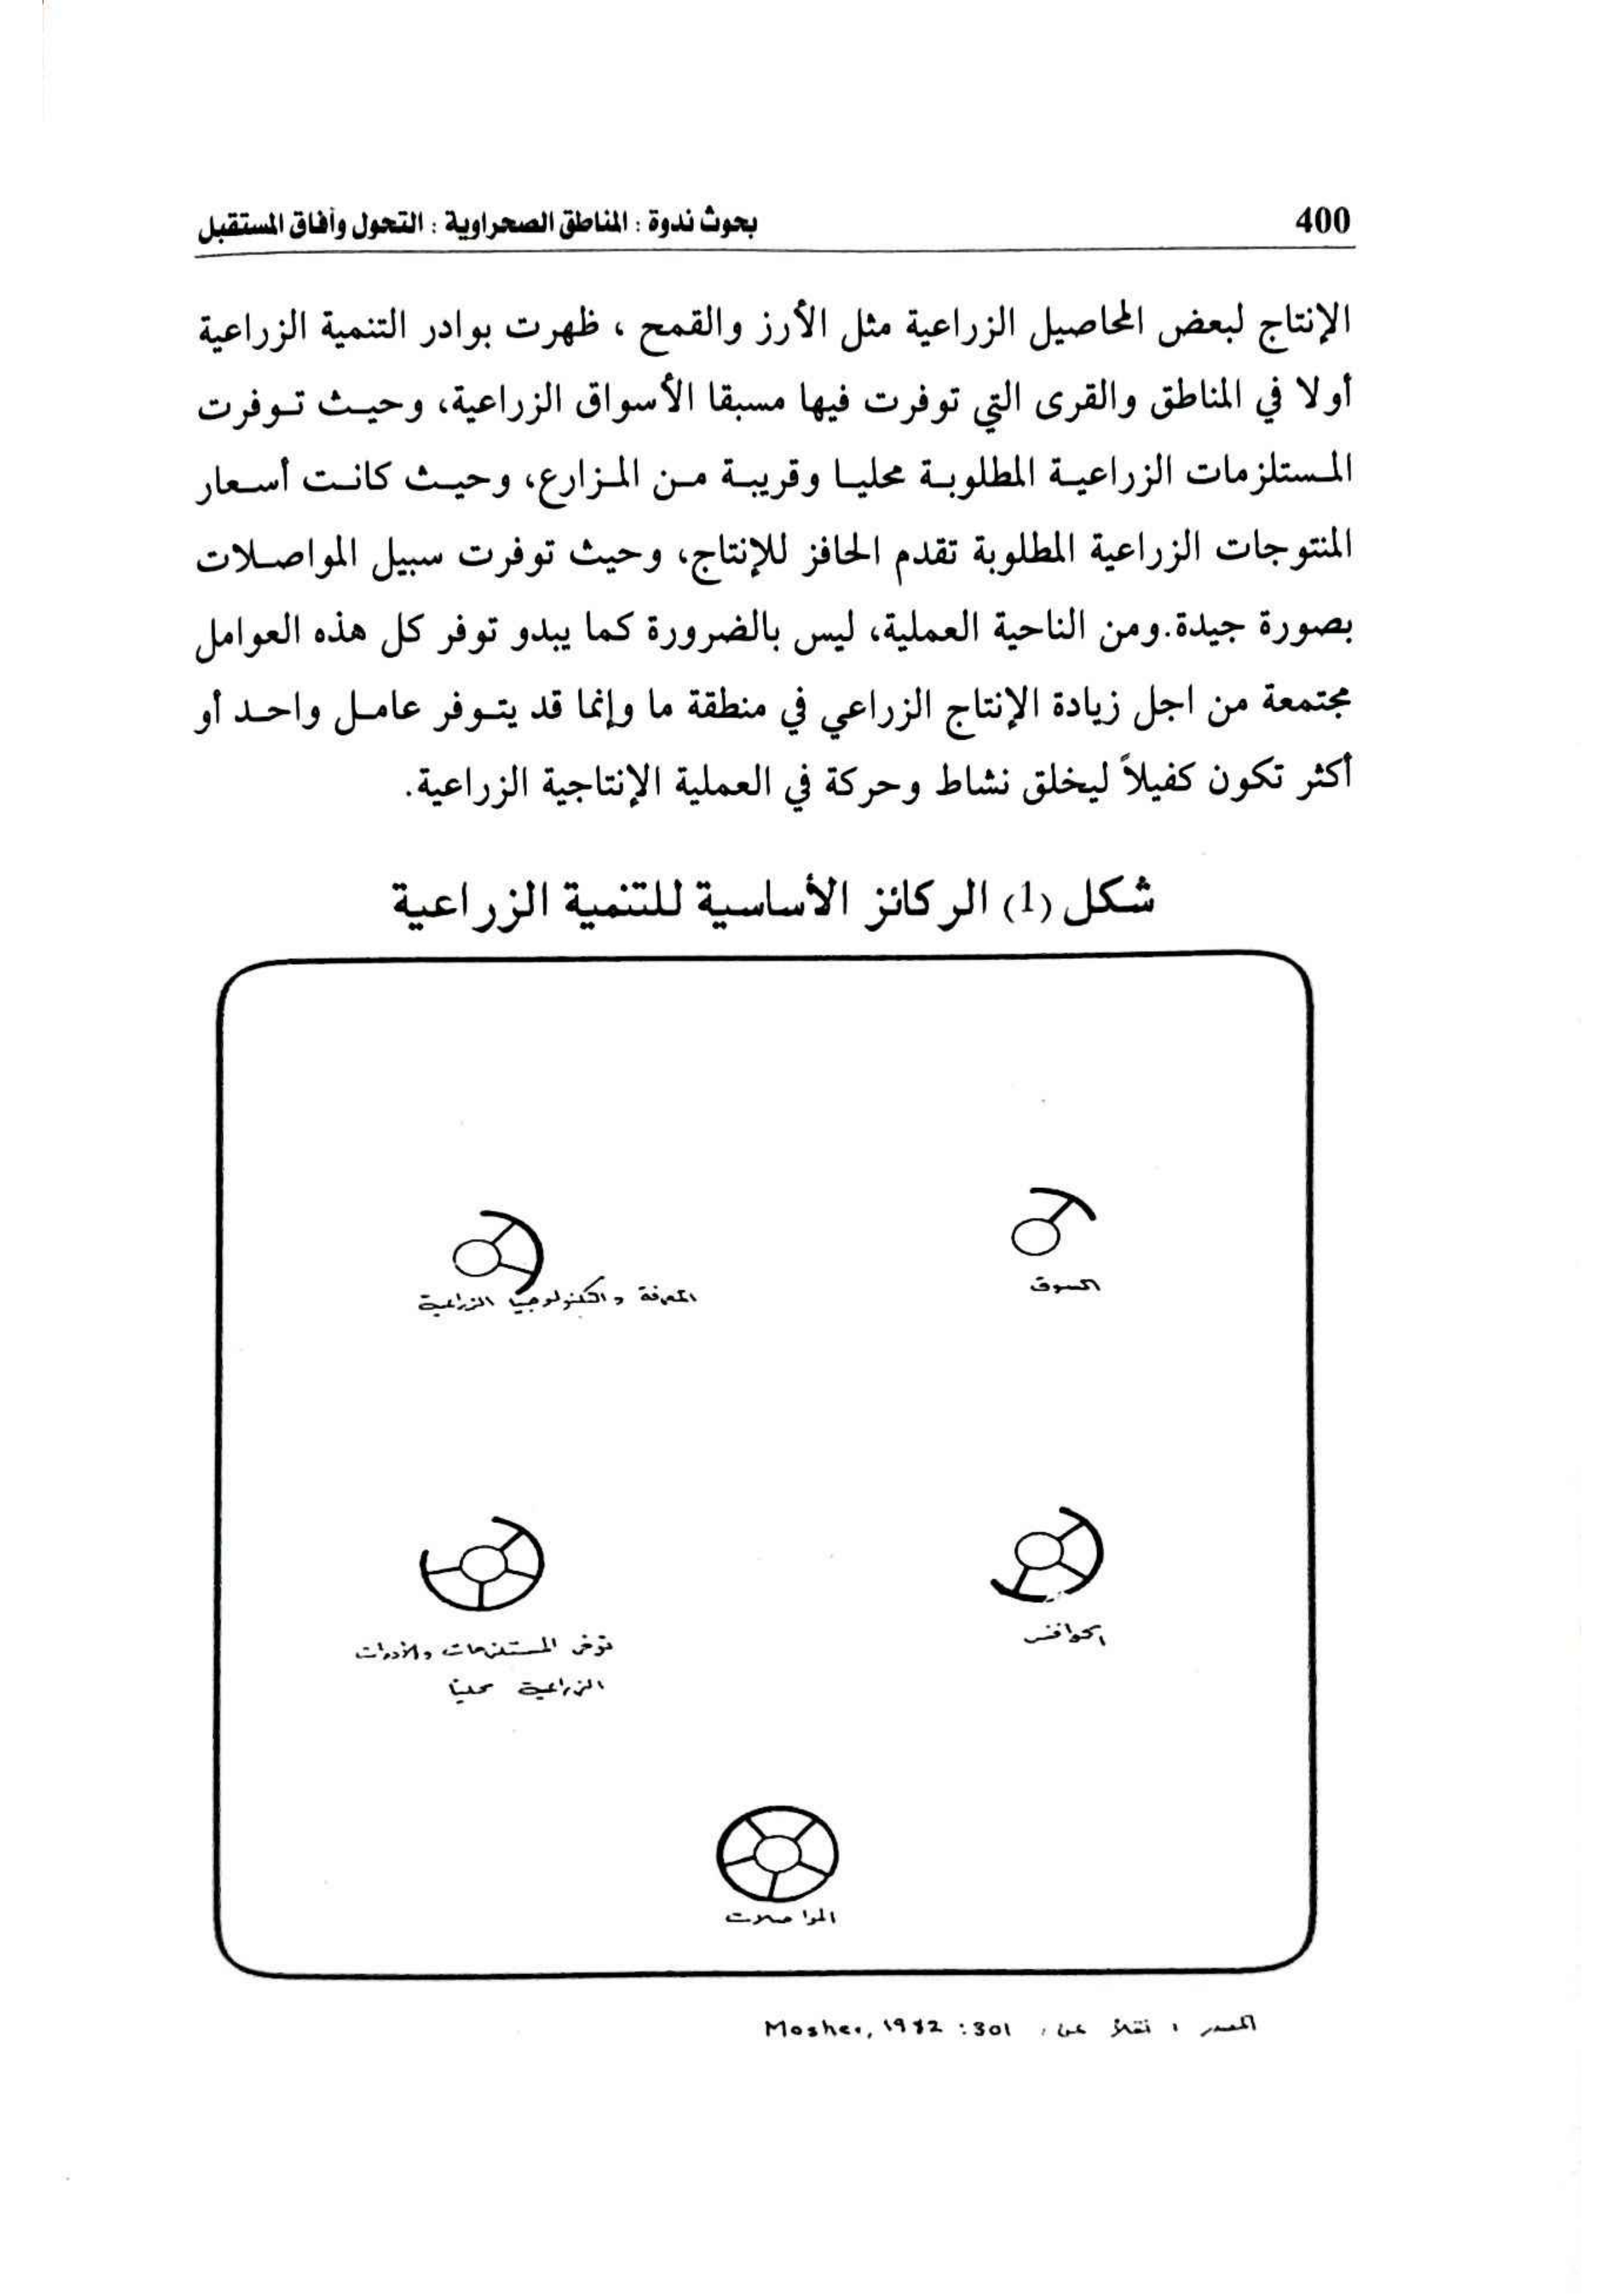 400
بحوث ندوة : المناطق الصحراوية : التحول وآفاق المستقبل
الإنتاج لبعض المحاصيل الزراعية مثل الأرز والقمح ، ظهرت بوادر التنمية الزراعية
أولا في المناطق والقرى التي توفرت فيها مسبقا الأسواق الزراعية، وحيث توفرت
المستلزمات الزراعية المطلوبة محليا وقريبة من المزارع، وحيث كانت أسعار
المنتوجات الزراعية المطلوبة تقدم الحافز للإنتاج، وحيث توفرت سبيل المواصلات
بصورة جيدة.ومن الناحية العملية، ليس بالضرورة كما يبدو توفر كل هذه العوامل
مجتمعة من اجل زيادة الإنتاج الزراعي في منطقة ما وإنما قد يتوفر عامل واحد أو
أكثر تكون كفيلاً ليخلق نشاط وحركة في العملية الإنتاجية الزراعية.
شكل (1) الركائز الأساسية للتنمية الزراعية
السوق
المعرفة والتكنولوجيا الزراعية
الحوافز
توفر المستلزمات والأدوات
الزراعية محليا
المواصلات
المصدر : نقلاً عن : Mosher, 1982 :301